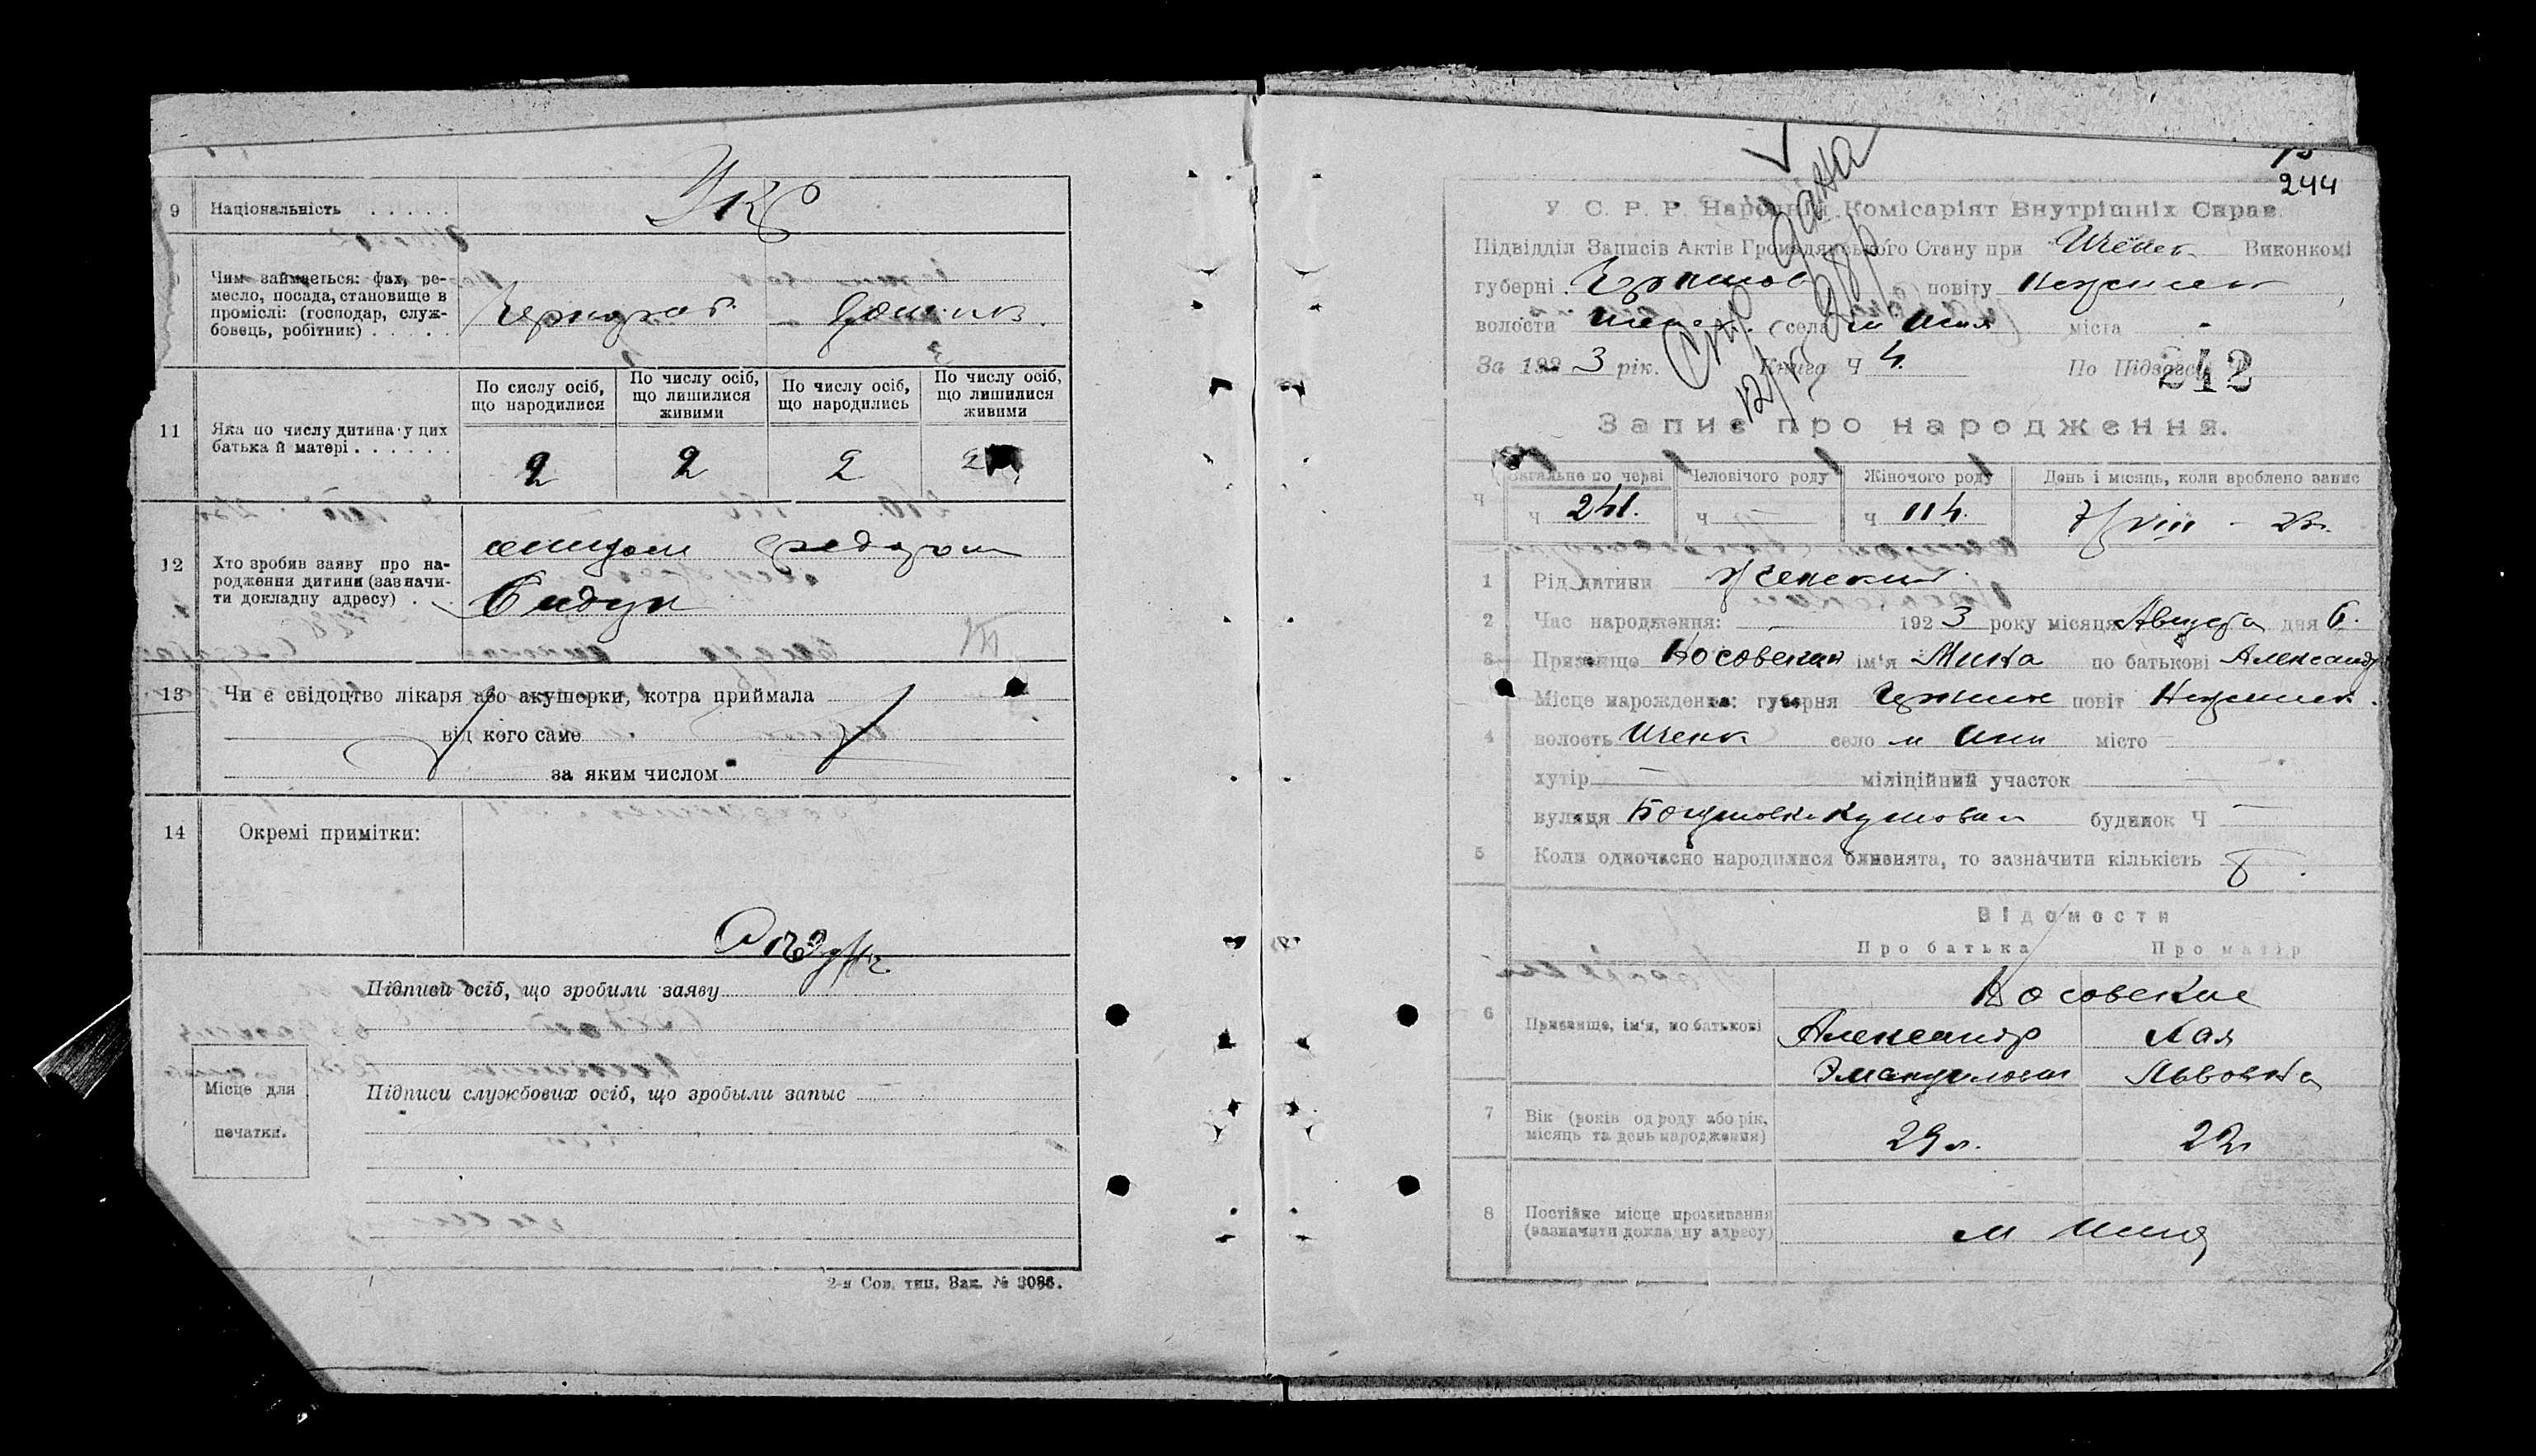 9 Національність . . . . . Укр
Чим займається: фах, ре-
месло, посада, становище в
проміслі: (господар, служ-
бовець, робітник) . . . . .
По сислу осіб,
що народилися
По числу осіб,
що лишилися
живими
По числу осіб,
що народились
По числу осіб,
що лишилися
живими
11 Яка по числу дитина у цих
батька й матері . . . . . .
2 2 2 2
12 Хто зробив заяву про на-
родження дитини (зазначи-
ти докладну адресу) . . .
13 Чи є свідоцтво лікаря або акушерки, котра приймала
від кого саме
за яким числом
14 Окремі примітки:
Підписи осіб, що зробили заяву
Місце для
печатки.
Підписи службових осіб, що зробыли запыс
2-я Сов. тип. Зак. № 3086.
244
У. С. Р. Р. Народній Комісаріят Внутрішніх Справ.
Підвідділ Записів Актів Громадянського Стану при Ичен. Виконкомі
губерні повіту Нежинск
волости (села м Ичня міста
За 1923 рік. Книга Ч 4. По Підзагсу
242
Запис про народження.
Загальне по черві Человічого роду Жіночого роду День і місяць, коли вроблено запис
Ч Ч 241. Ч — Ч 114. 7/VIII - 23.
1 Рід дитини Женский
2 Час народження: 1923 року місяця Августа дня 6.
3 Призвище Носовская ім'я Мина по батькові Александр
Місце народження: губерня повіт Нежинск.
4 волость Иченск село м Ичня місто
хутір — міліційний участок —
вулиця будинок Ч —
5 Коли одночасно народилися близнята, то зазначити кількість
Відомости
Про батька Про матір
Носовские
6 Призвище, ім'я, по батькові Александр Хая
Львовна
7 Вік (років од роду або рік,
місяць та день народження) 29 л. 22
8 Постійне місце проживання
(зазначити докладну адресу) м Ичня